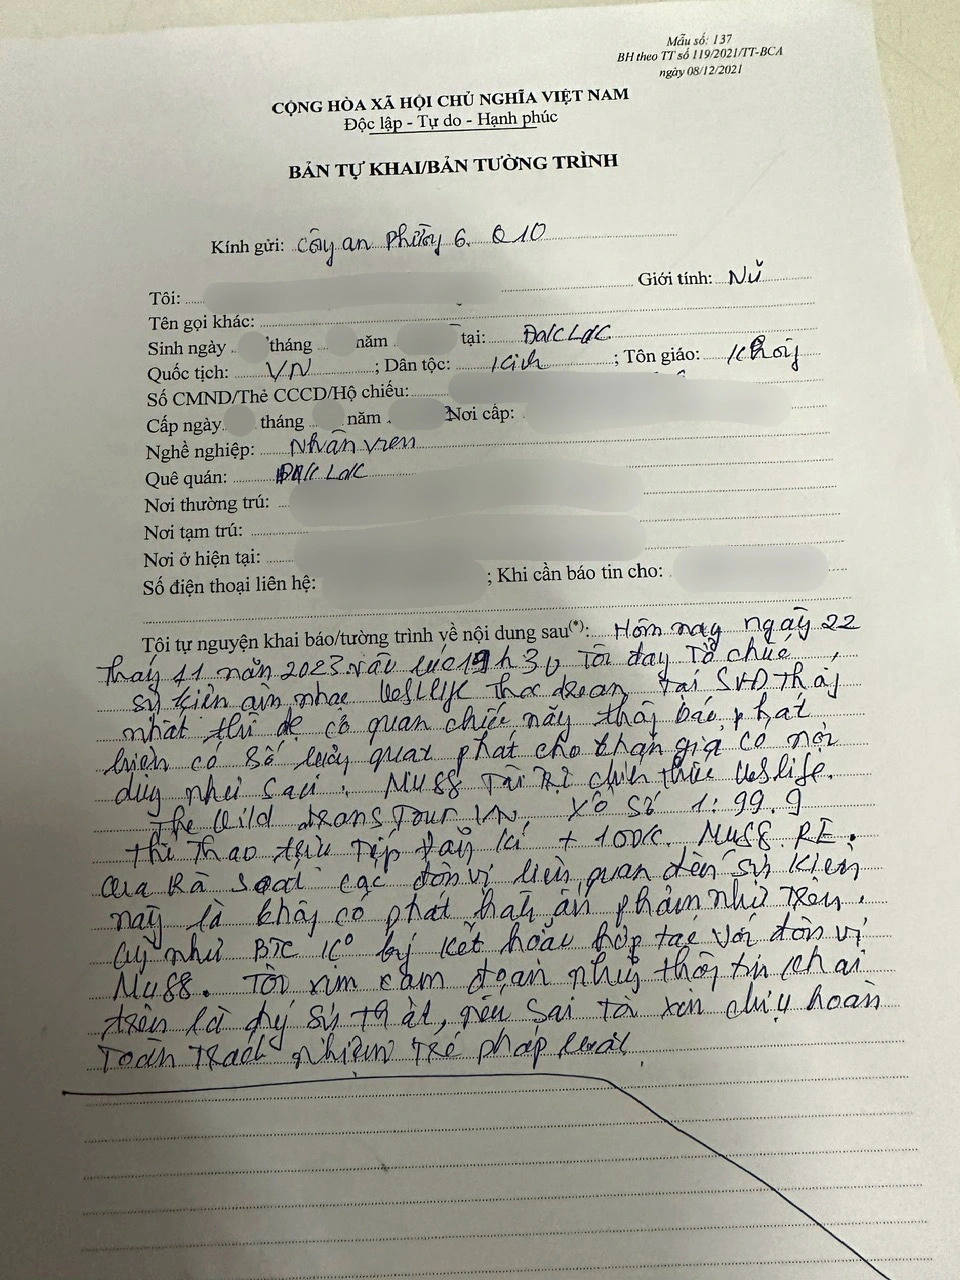 Mẫu số: 137
BH theo TT số 119/2021/TT-BCA
ngày 08/12/2021
CỘNG HÒA XÃ HỘI CHỦ NGHĨA VIỆT NAM
Độc lập - Tự do - Hạnh phúc
BẢN TỰ KHAI/BẢN TƯỜNG TRÌNH
Kính gửi: Công an Phường 6. Q10
Tôi: Giới tính: Nữ
Tên gọi khác:
Sinh ngày tháng năm tại: Đắk Lắk
Quốc tịch: VN ; Dân tộc: Kinh ; Tôn giáo: Không
Số CMND/Thẻ CCCD/Hộ chiếu:
Cấp ngày tháng năm Nơi cấp:
Nghề nghiệp: Nhân viên
Quê quán: Đắk Lắk
Nơi thường trú:
Nơi tạm trú:
Nơi ở hiện tại:
Số điện thoại liên hệ: ; Khi cần báo tin cho:
Tôi tự nguyện khai báo/tường trình về nội dung sau(*): Hôm nay ngày 22
tháng 11 năm 2023 vào lúc 19h30 tôi đang tổ chức
sự kiện âm nhạc tại SVĐ Thống
nhất thì cơ quan chức năng thông báo, phát
hiện có số lượng quạt phát cho khán giả có nội
dung như sau: MU88 Tài trợ chính thức Weslife.
The Wild Dreams Tour VN, xổ số 1: 99.9
thể thao trực tiếp đăng kí + 100K. MU88.
Qua rà soát các đơn vị liên quan đến sự kiện
này là không có phát hành ấn phẩm như trên.
Cũng như BTC kº ký kết hoặc hợp tác với đơn vị
MU88. Tôi xin cam đoan những thông tin khai
trên là đúng sự thật, nếu sai tôi xin chịu hoàn
toàn trách nhiệm pháp luật.